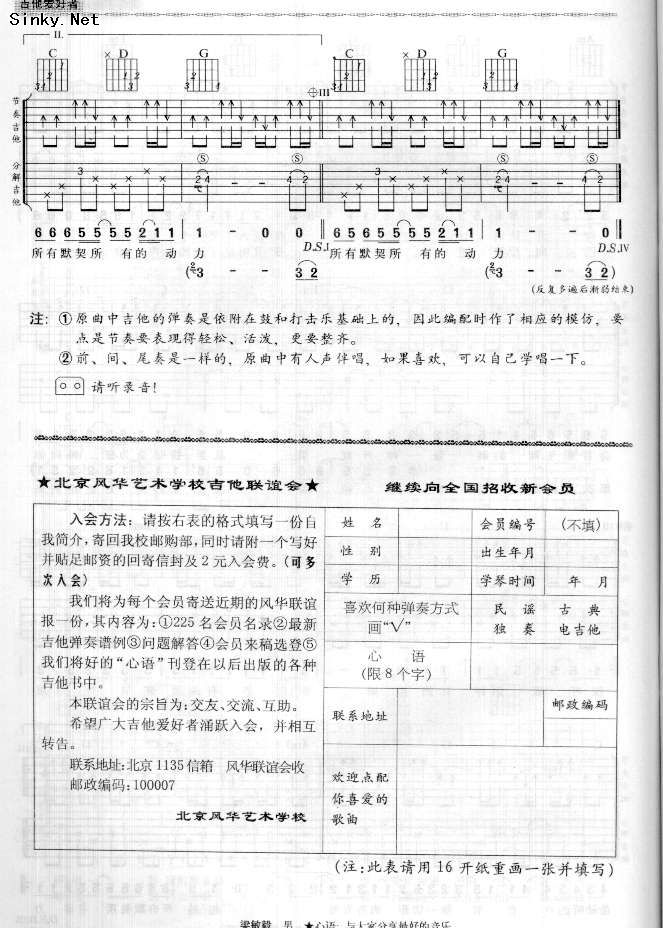 吉他爱好者
Sinky.Net
II.
C × D G C × D G
III
节奏吉他
分解吉他
6 6 6 5 5 5 5 2 1 1 | 1 - 0 0 6 6 6 5 5 5 5 2 1 1 | 1 - - 0
D.S.I D.S.IV
所有默契所 有的 动 力 所有默契所 有的 动 力
3 - - 3 2 (3 - - 3 2)
(反复多遍后渐弱结束)
注: ①原曲中吉他的弹奏是依附在鼓和打击乐基础上的, 因此编配时作了相应的模仿, 要
点是节奏要表现得轻松、活泼, 更要整齐。
②前、间、尾奏是一样的, 原曲中有人声伴唱, 如果喜欢, 可以自己学唱一下。
请听录音!
★北京风华艺术学校吉他联谊会★ 继续向全国招收新会员
入会方法: 请按右表的格式填写一份自
我简介,寄回我校邮购部,同时请附一个写好
并贴足邮资的回寄信封及2元入会费。(可多
次入会)
我们将为每个会员寄送近期的风华联谊
报一份,其内容为:①225名会员名录②最新
吉他弹奏谱例③问题解答④会员来稿选登⑤
我们将好的“心语”刊登在以后出版的各种
吉他书中。
本联谊会的宗旨为:交友、交流、互助。
希望广大吉他爱好者涌跃入会, 并相互
转告。
联系地址:北京1135信箱 风华联谊会收
邮政编码:100007
北京风华艺术学校
姓 名 会员编号 (不填)
性 别 出生年月
学 历 学琴时间 年 月
喜欢何种弹奏方式 民 谣 古 典
画“√” 独 奏 电吉他
心 语
(限8个字)
邮政编码
联系地址
欢迎点配
你喜爱的
歌曲
(注:此表请用16开纸重画一张并填写)
梁敏毅 男 ★心语: 与大家分享最好的音乐